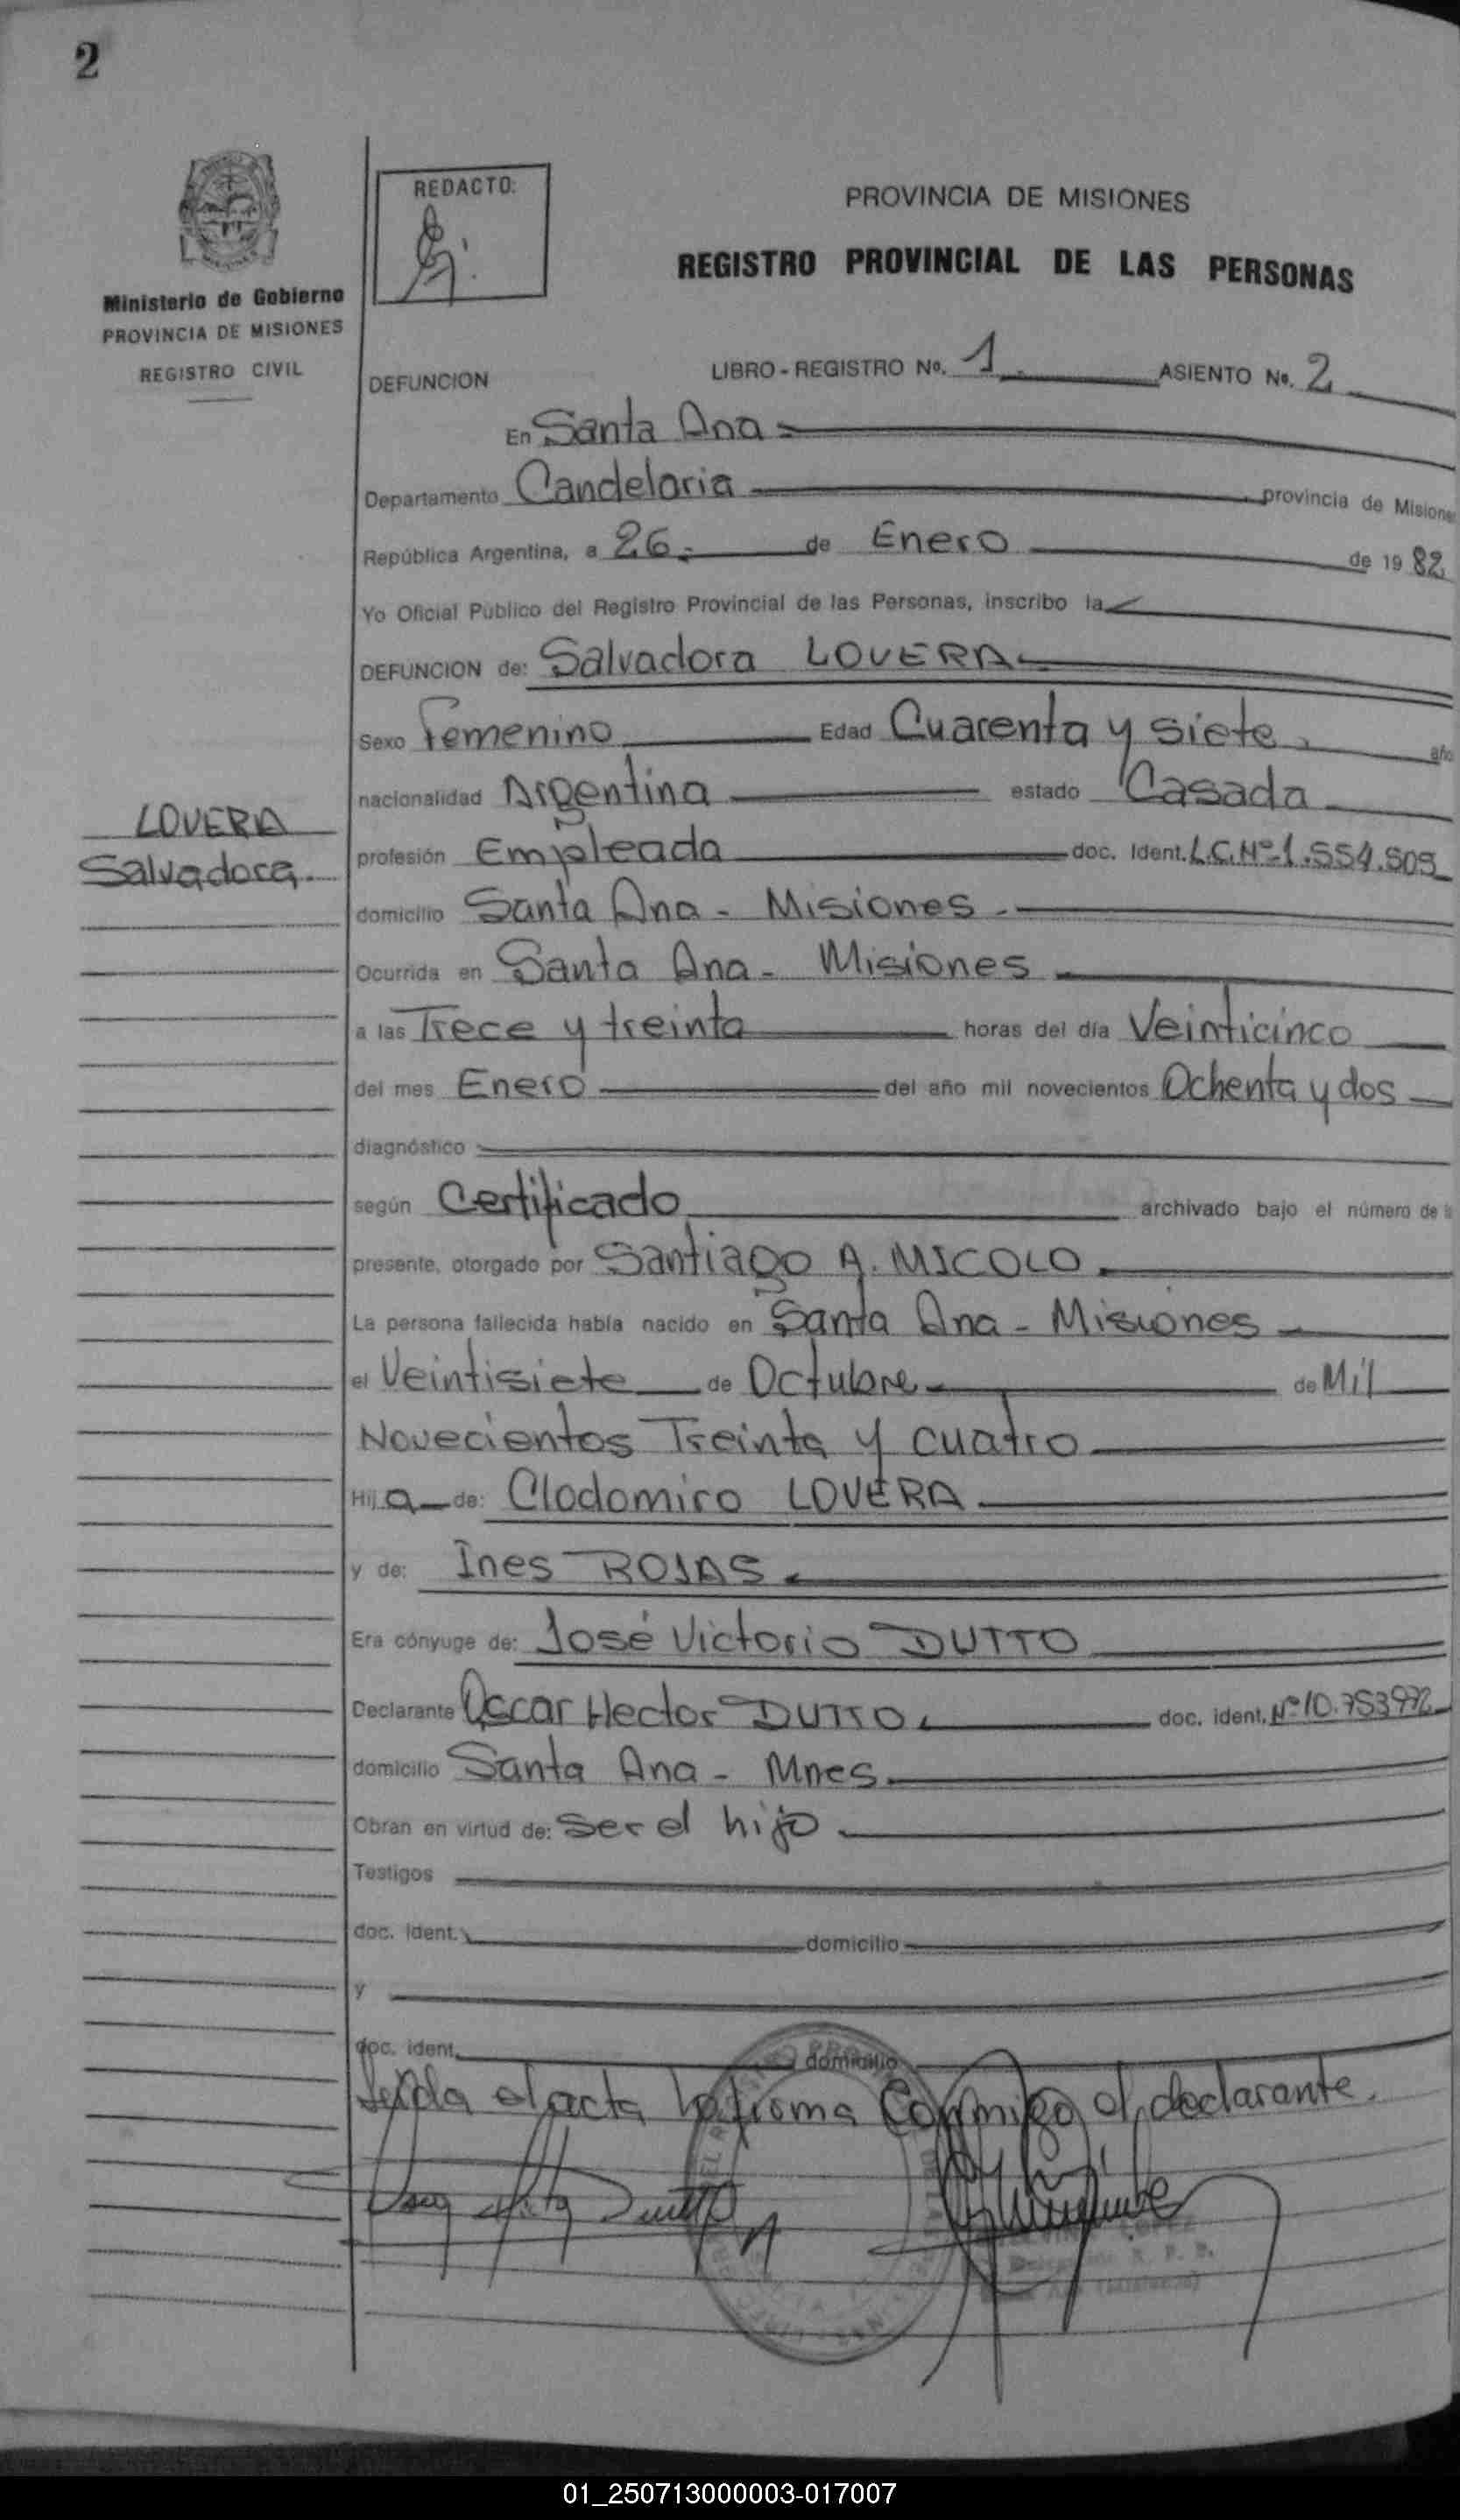 2
REDACTO:
Ministerio de Gobierno
PROVINCIA DE MISIONES
REGISTRO CIVIL
PROVINCIA DE MISIONES
REGISTRO PROVINCIAL DE LAS PERSONAS
DEFUNCION LIBRO - REGISTRO No. 1 ASIENTO No. 2
En Santa Ana
Departamento Candelaria provincia de Misiones
República Argentina, a 26 de Enero de 19 82
Yo Oficial Público del Registro Provincial de las Personas, inscribo la
DEFUNCION de: Salvadora LOVERA
Sexo Femenino Edad Cuarenta y siete año
nacionalidad Argentina estado Casada
LOVERA
Salvadora.
profesión Empleada doc. Ident. L.C.Nº 1.554.505
domicilio Santa Ana - Misiones
Ocurrida en Santa Ana - Misiones
a las Trece y treinta horas del día Veinticinco
del mes Enero del año mil novecientos Ochenta y dos
diagnóstico
según Certificado archivado bajo el número de la
presente, otorgado por Santiago A. MICOLO
La persona fallecida había nacido en Santa Ana - Misiones
el Veintisiete de Octubre de Mil
Novecientos Treinta y cuatro
Hij a de: Clodomiro LOVERA
y de: Ines ROJAS
Era cónyuge de: José Victorio DUTTO
Declarante Oscar Hector DUTTO doc. ident. Nº 10.753972
domicilio Santa Ana - Mnes
Obran en virtud de: Ser el hijo
Testigos
doc. ident. domicilio
y
doc. ident. domicilio
Leída el acta la firma Conmigo el declarante.
01_250713000003-017007